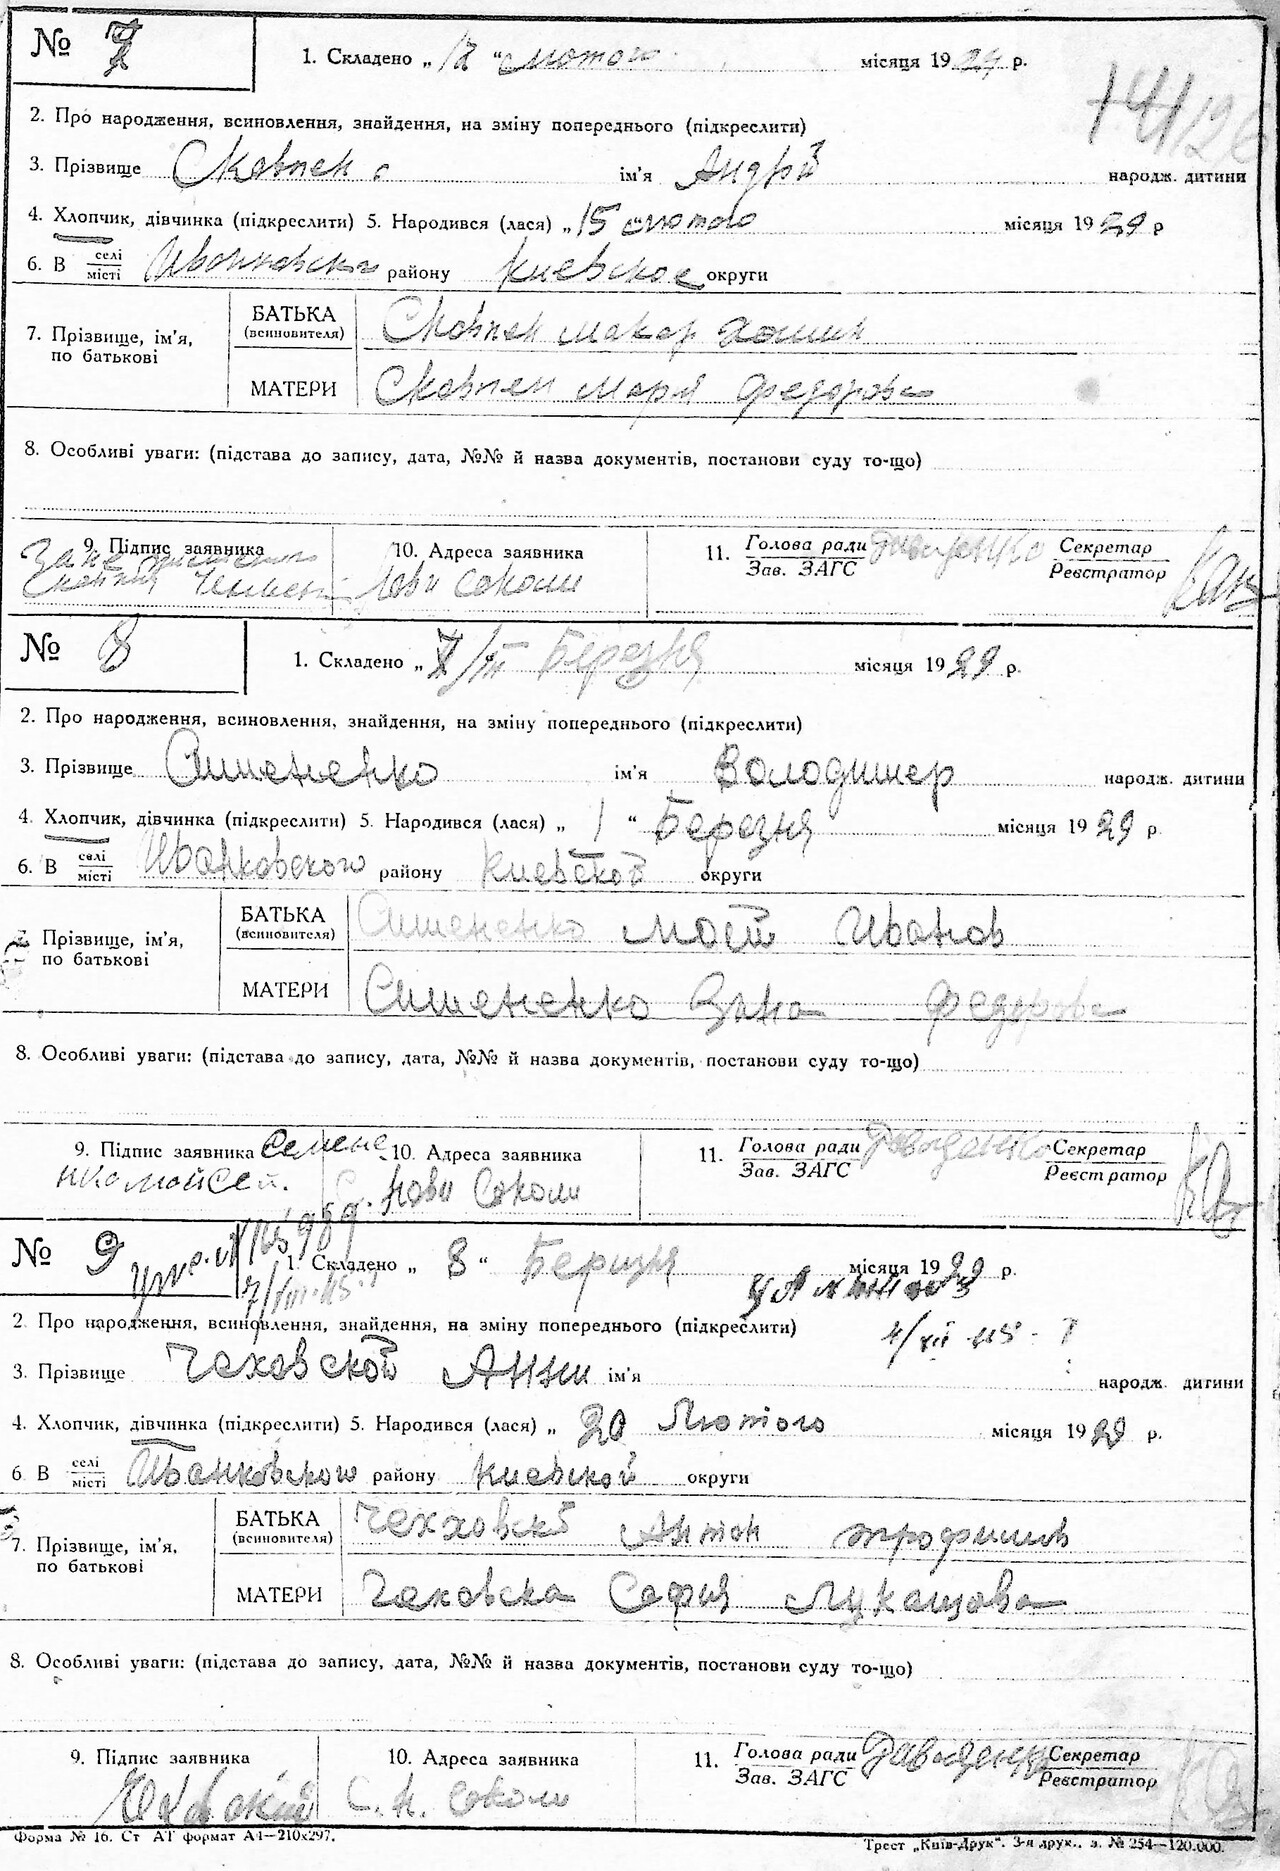 № 7
1. Складено „ " лютого місяця 1929 р.
2. Про народження, всиновлення, знайдення, на зміну попереднього (підкреслити)
3. Прізвище ім'я Андрій народж. дитини
4. Хлопчик, дівчинка (підкреслити) 5. Народився (лася) „15 лютого місяця 1929 р
6. В селі місті району Киевское округи
7. Прізвище, ім'я, по батькові
БАТЬКА (всиновителя) Сковпен Макар
МАТЕРИ Сковпен Мария Федоровн
8. Особливі уваги: (підстава до запису, дата, №№ й назва документів, постанови суду то-що)
9. Підпис заявника
10. Адреса заявника Нови Соколи
11. Голова ради Зав. ЗАГС Давиденко Секретар Реєстратор
№ 8
1. Складено „ 7/III Березня місяця 1929 р.
2. Про народження, всиновлення, знайдення, на зміну попереднього (підкреслити)
3. Прізвище Симененко ім'я Володимер народж. дитини
4. Хлопчик, дівчинка (підкреслити) 5. Народився (лася) „ 1 " Березня місяця 1929 р.
6. В селі місті Иванковского району Киевской округи
Прізвище, ім'я, по батькові
БАТЬКА (всиновителя) Симененко Мосій Иванов
МАТЕРИ Симененко Федорова
8. Особливі уваги: (підстава до запису, дата, №№ й назва документів, постанови суду то-що)
9. Підпис заявника Семене
нкомойсей.
10. Адреса заявника Нови Соколи
11. Голова ради Зав. ЗАГС Давиденко Секретар Реєстратор
№ 9
1. Складено „ 8 " Березня місяця 1929 р.
2. Про народження, всиновлення, знайдення, на зміну попереднього (підкреслити)
4/VII 45
3. Прізвище Чаховской Анни ім'я народж. дитини
4. Хлопчик, дівчинка (підкреслити) 5. Народився (лася) „ 20 Лютого місяця 1929 р.
6 В селі місті Иванковского району Киевской округи
7. Прізвище, ім'я, по батькові
БАТЬКА (всиновителя) Чехховскй Антон трофимив
МАТЕРИ Чаховска София Лукашова
8. Особливі уваги: (підстава до запису, дата, №№ й назва документів, постанови суду то-що)
9. Підпис заявника
10. Адреса заявника С. Н. Соколи
11. Голова ради Зав. ЗАГС Давиденко Секретар Реєстратор
Форма № 16. Ст АТ формат А4—210х297.
Трест „Київ-Друк". 3-я друк., з. № 254—120.000.